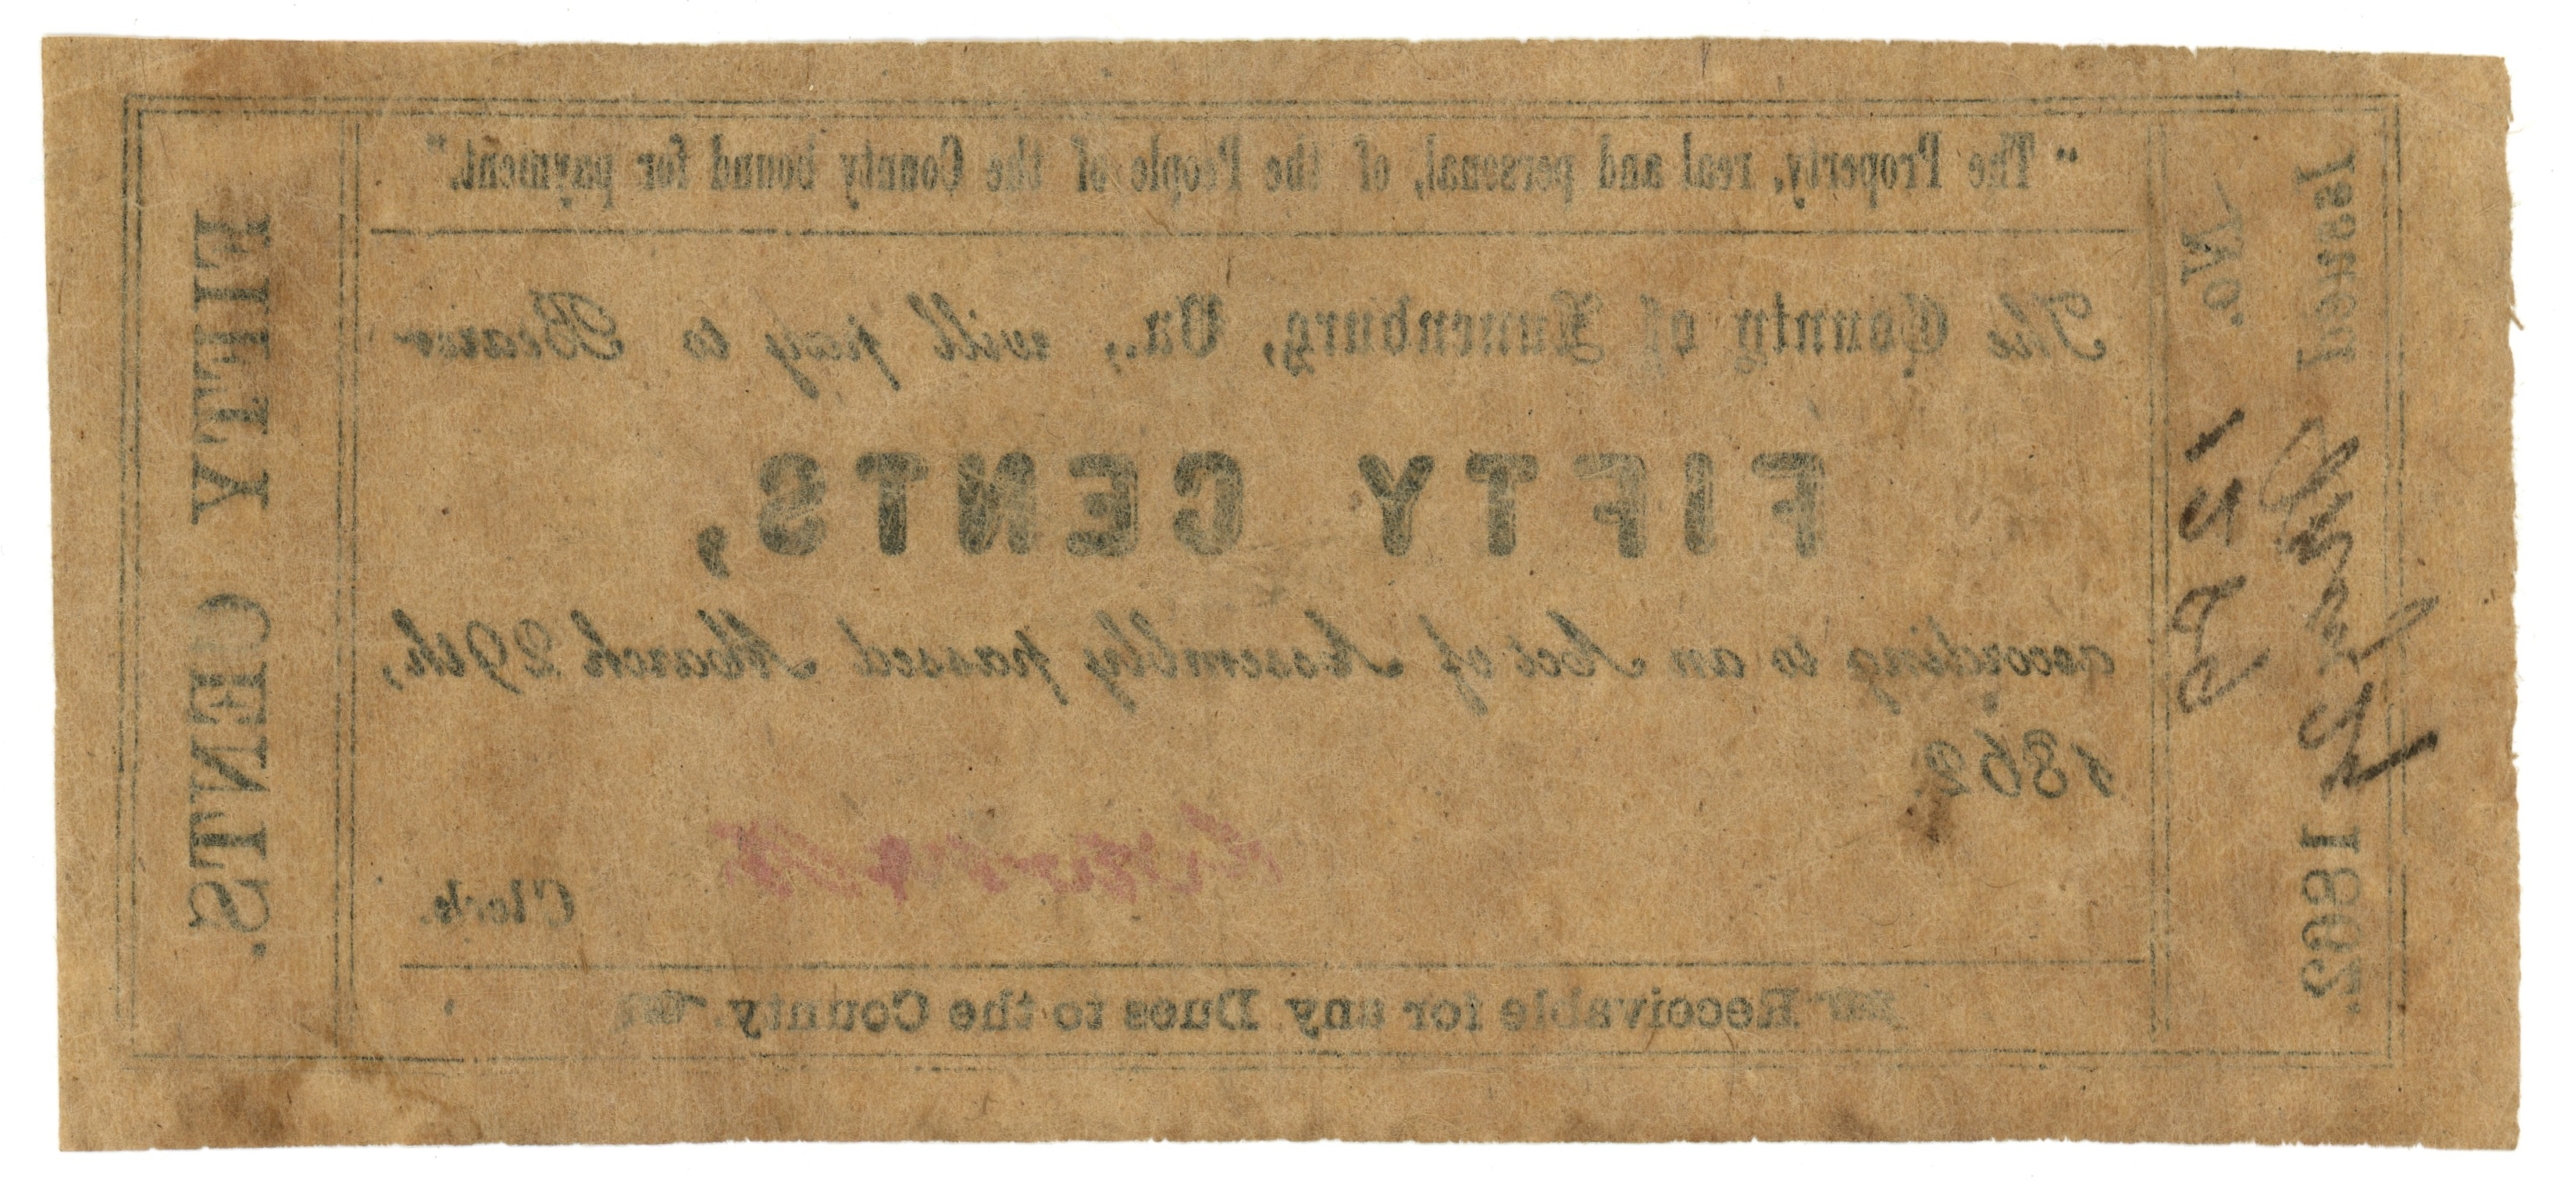 Issued
1862
No.
"The Property, real and personal, of the People of the County bound for payment."
The County of Lunenburg, Va., will pay to Bearer
FIFTY CENTS,
according to an Act of Assembly passed March 29th,
1862
Clerk.
Receivable for any Dues to the County.
FIFTY CENTS.